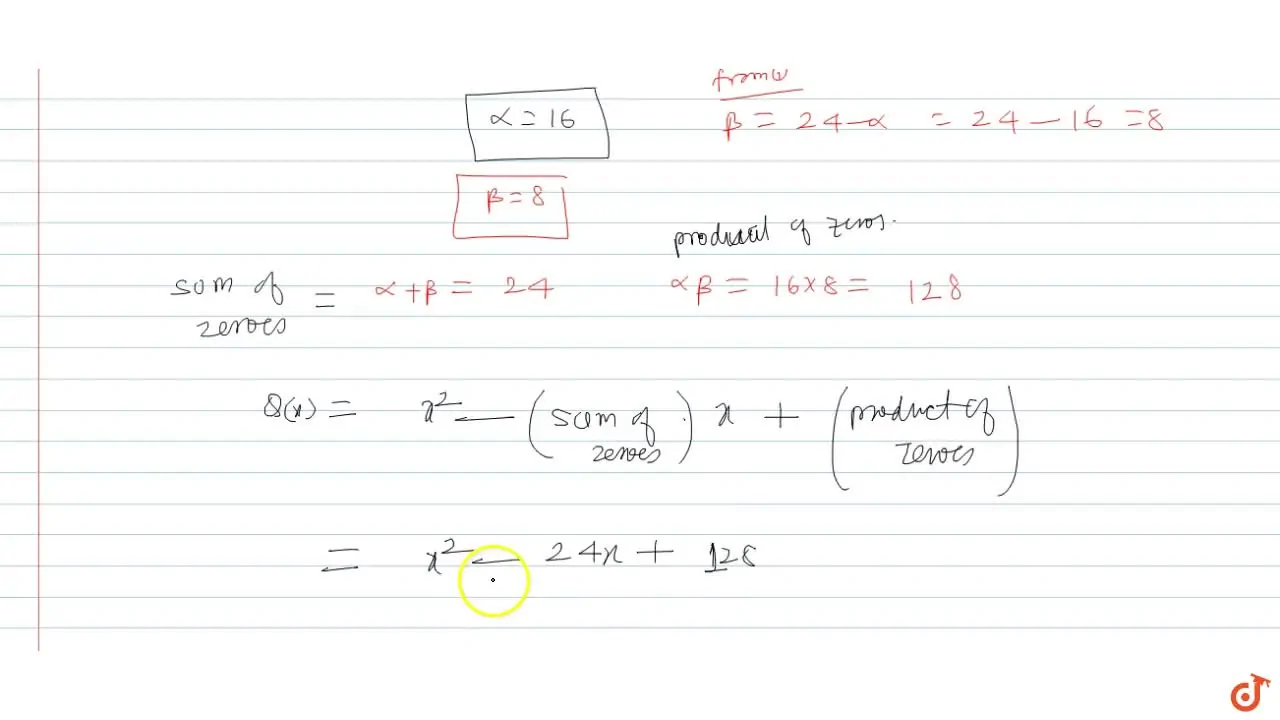 from (1)
α = 16
β = 24 - α = 24 - 16 = 8
β = 8
product of zeros.
sum of zeroes = α + β = 24
αβ = 16 × 8 = 128
Q(x) = x² - (sum of zeroes) x + (product of zeroes)
= x² - 24x + 128